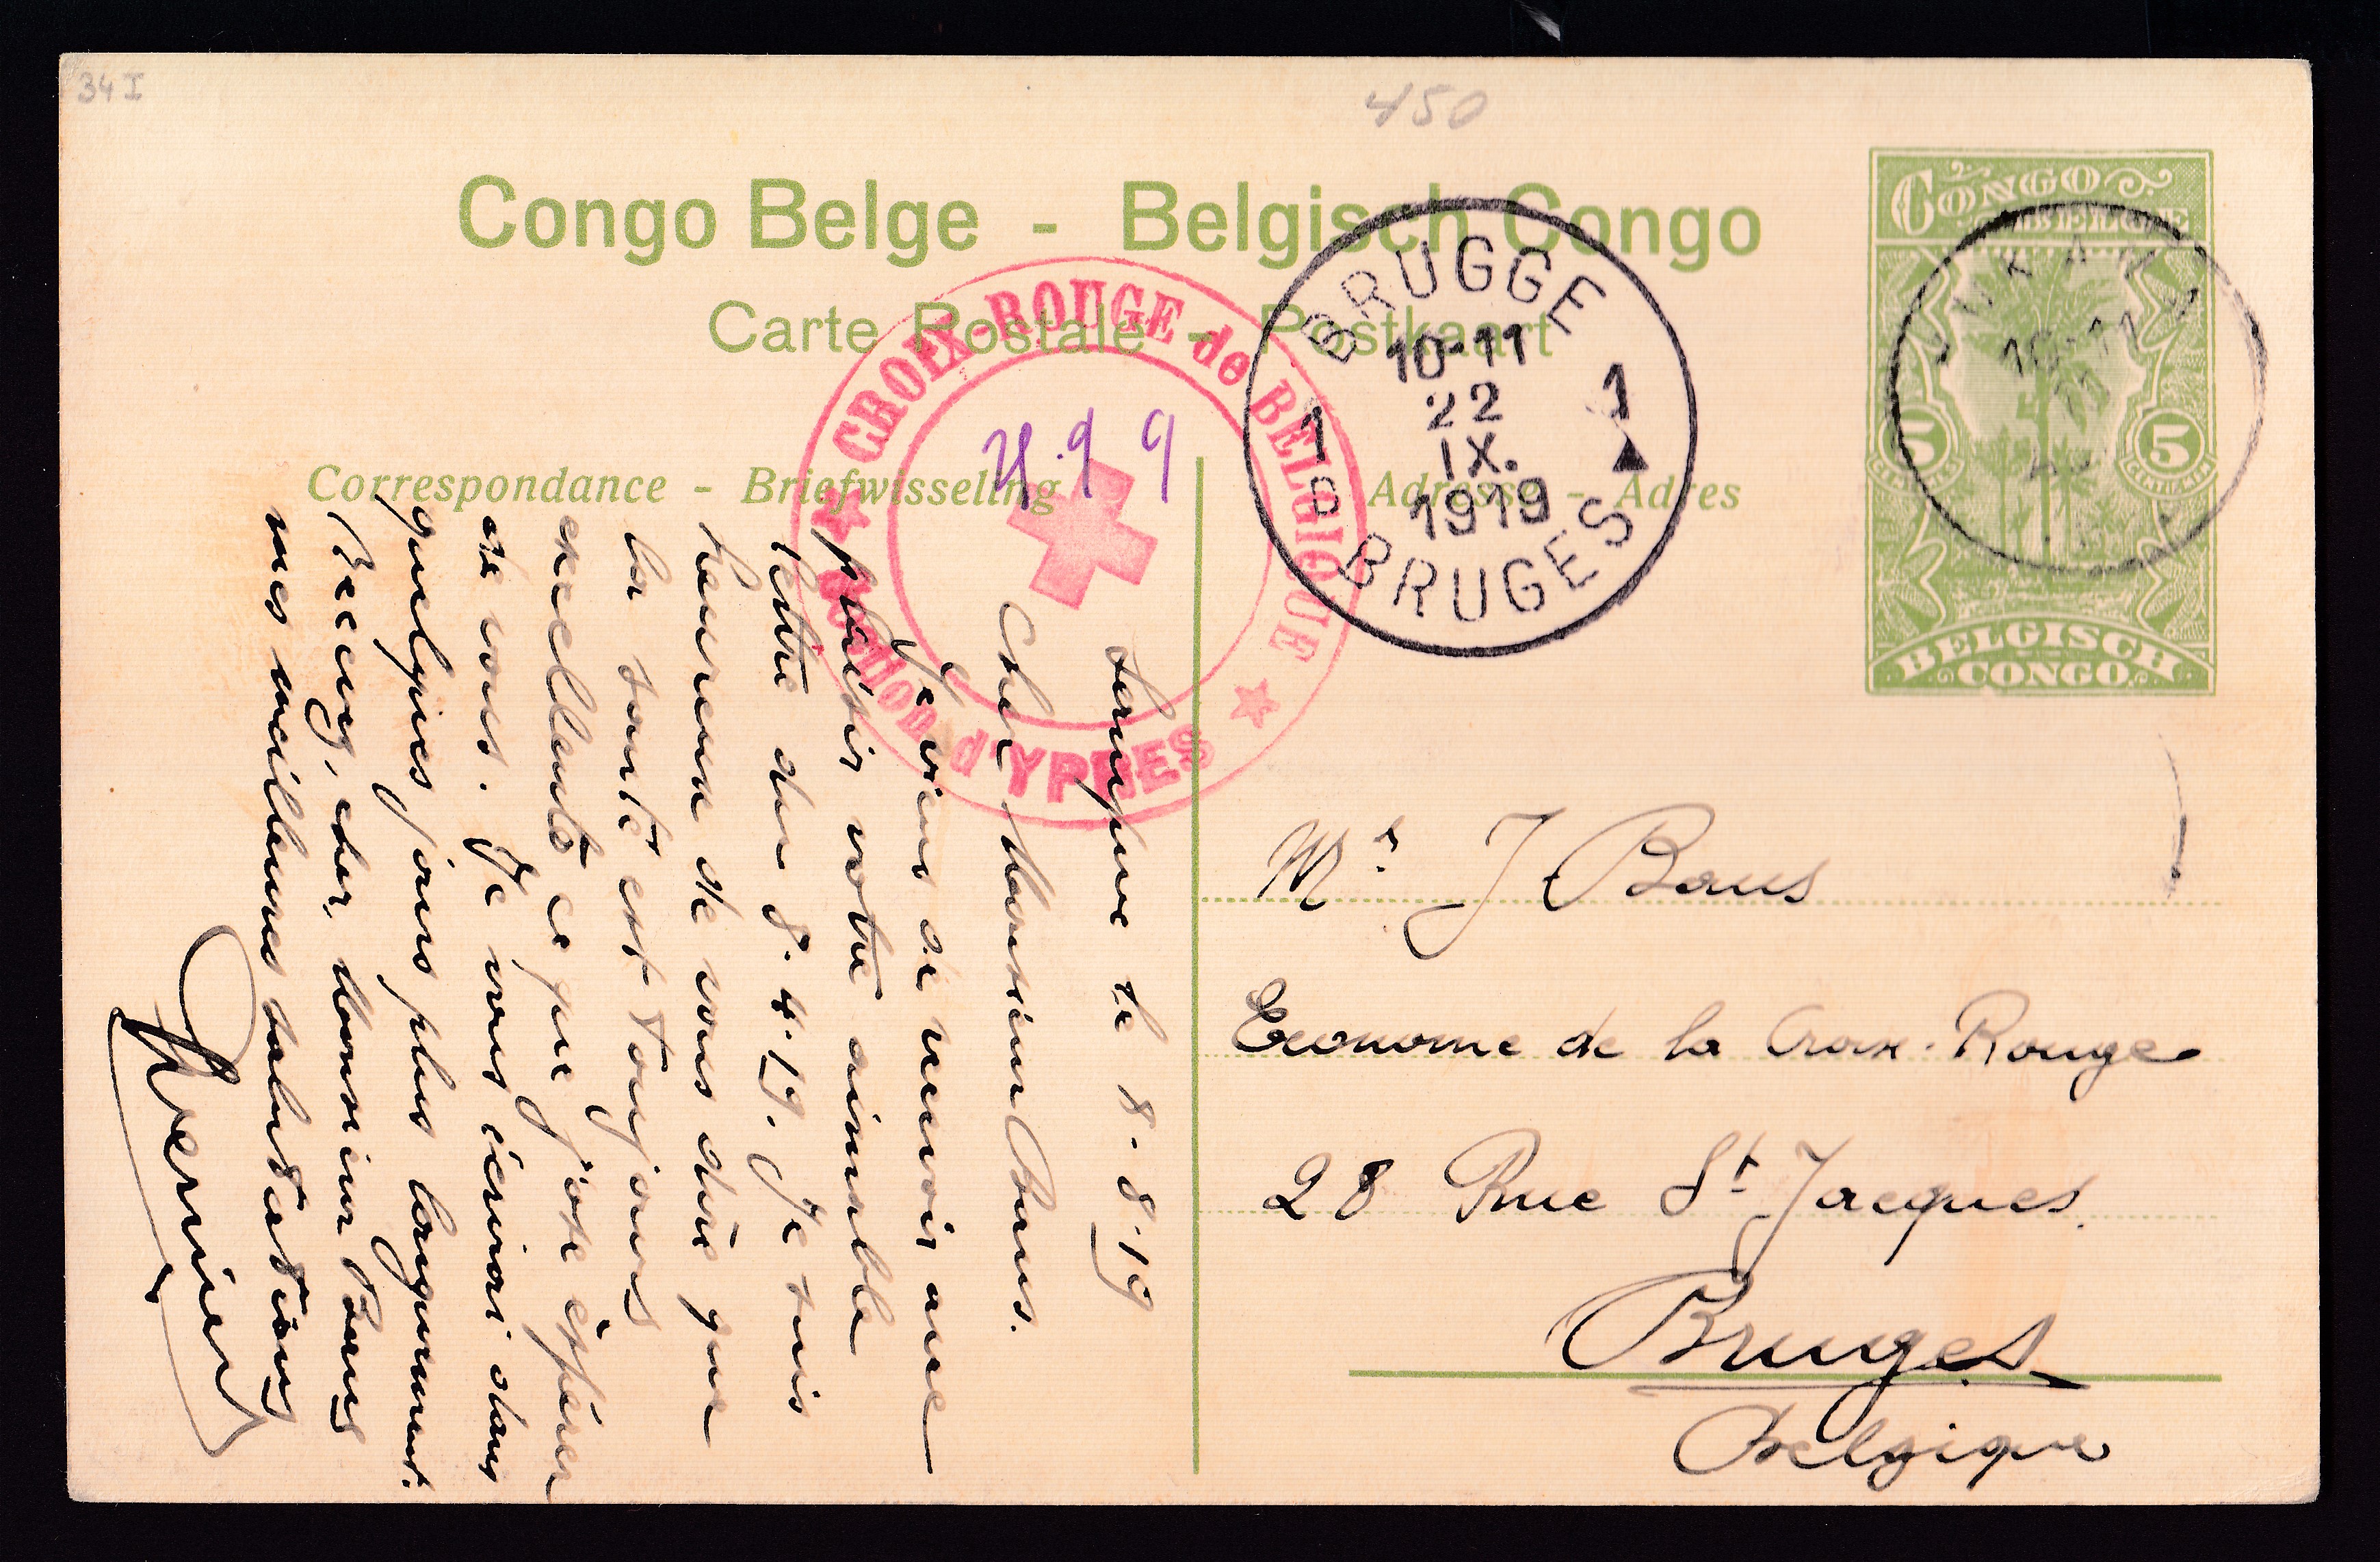 34 I
450
Congo Belge - Belgisch Congo
Carte Postale - Postkaart
Correspondance - Briefwisseling
Adresse - Adres
CONGO BELGE
5 5
CENTIEMES CENTIEMEN
BELGISCH CONGO
BRUGGE
10-11
22
IX.
1919
1 1
BRUGES
10-11
CROIX-ROUGE de BELGIQUE
Section d'YPRES
le 8-8-19
Cher Monsieur Baus.
Je viens de recevoir avec
plaisir votre aimable
lettre du 8.4.19. Je suis
heureux de vous dire que
la santé est toujours
excellente ce que j'ose espérer
de vous. Je vous écrirai dans
quelques jours plus longuement.
Recevez, cher Monsieur Baus
mes meilleures salutations
Mr J Baus
Econome de la Croix-Rouge
28 Rue St Jacques.
Bruges
Belgique